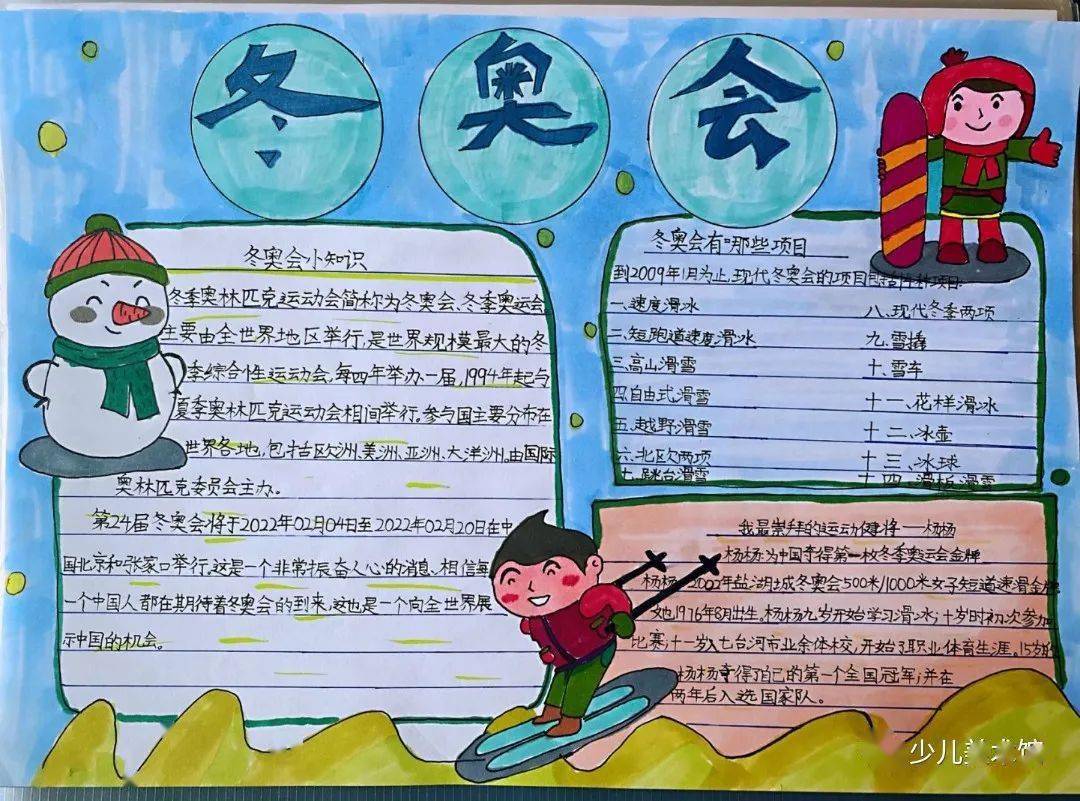 冬奥会
冬奥会小知识
冬季奥林匹克运动会简称为冬奥会、冬季奥运会
主要由全世界地区举行,是世界规模最大的冬
季综合性运动会,每四年举办一届,1994年起与
夏季奥林匹克运动会相间举行。参与国主要分布在
世界各地,包括欧洲、美洲、亚洲、大洋洲。由国际
奥林匹克委员会主办。
第24届冬奥会将于2022年02月04日至2022年02月20日在中
国北京和张家口举行。这是一个非常振奋人心的消息、相信每
一个中国人都在期待着冬奥会的到来,这也是一个向全世界展
示中国的机会。
冬奥会有"那些项目
到2009年1月为止,现代冬奥会的项目包括种项目:
一、速度滑冰
二、短跑道速度滑冰
三、高山滑雪
四、自由式滑雪
五、越野滑雪
六、北欧两项
七、跳台滑雪
八、现代冬季两项
九、雪撬
十、雪车
十一、花样滑冰
十二、冰壶
十三、冰球
十四、滑板滑雪
我最崇拜的运动健将——杨杨
杨杨为中国拿得第一枚冬季奥运会金牌
杨杨,2002年盐湖城冬奥会500米/1000米女子短道速滑金牌
她1976年8月出生。杨杨九岁开始学习滑冰;十岁时初次参加
比赛;十一岁入七台河市业余体校,开始了职业体育生涯。15岁的
杨杨拿得了自己的第一个全国冠军;并在
两年后入选国家队。
少儿美术馆